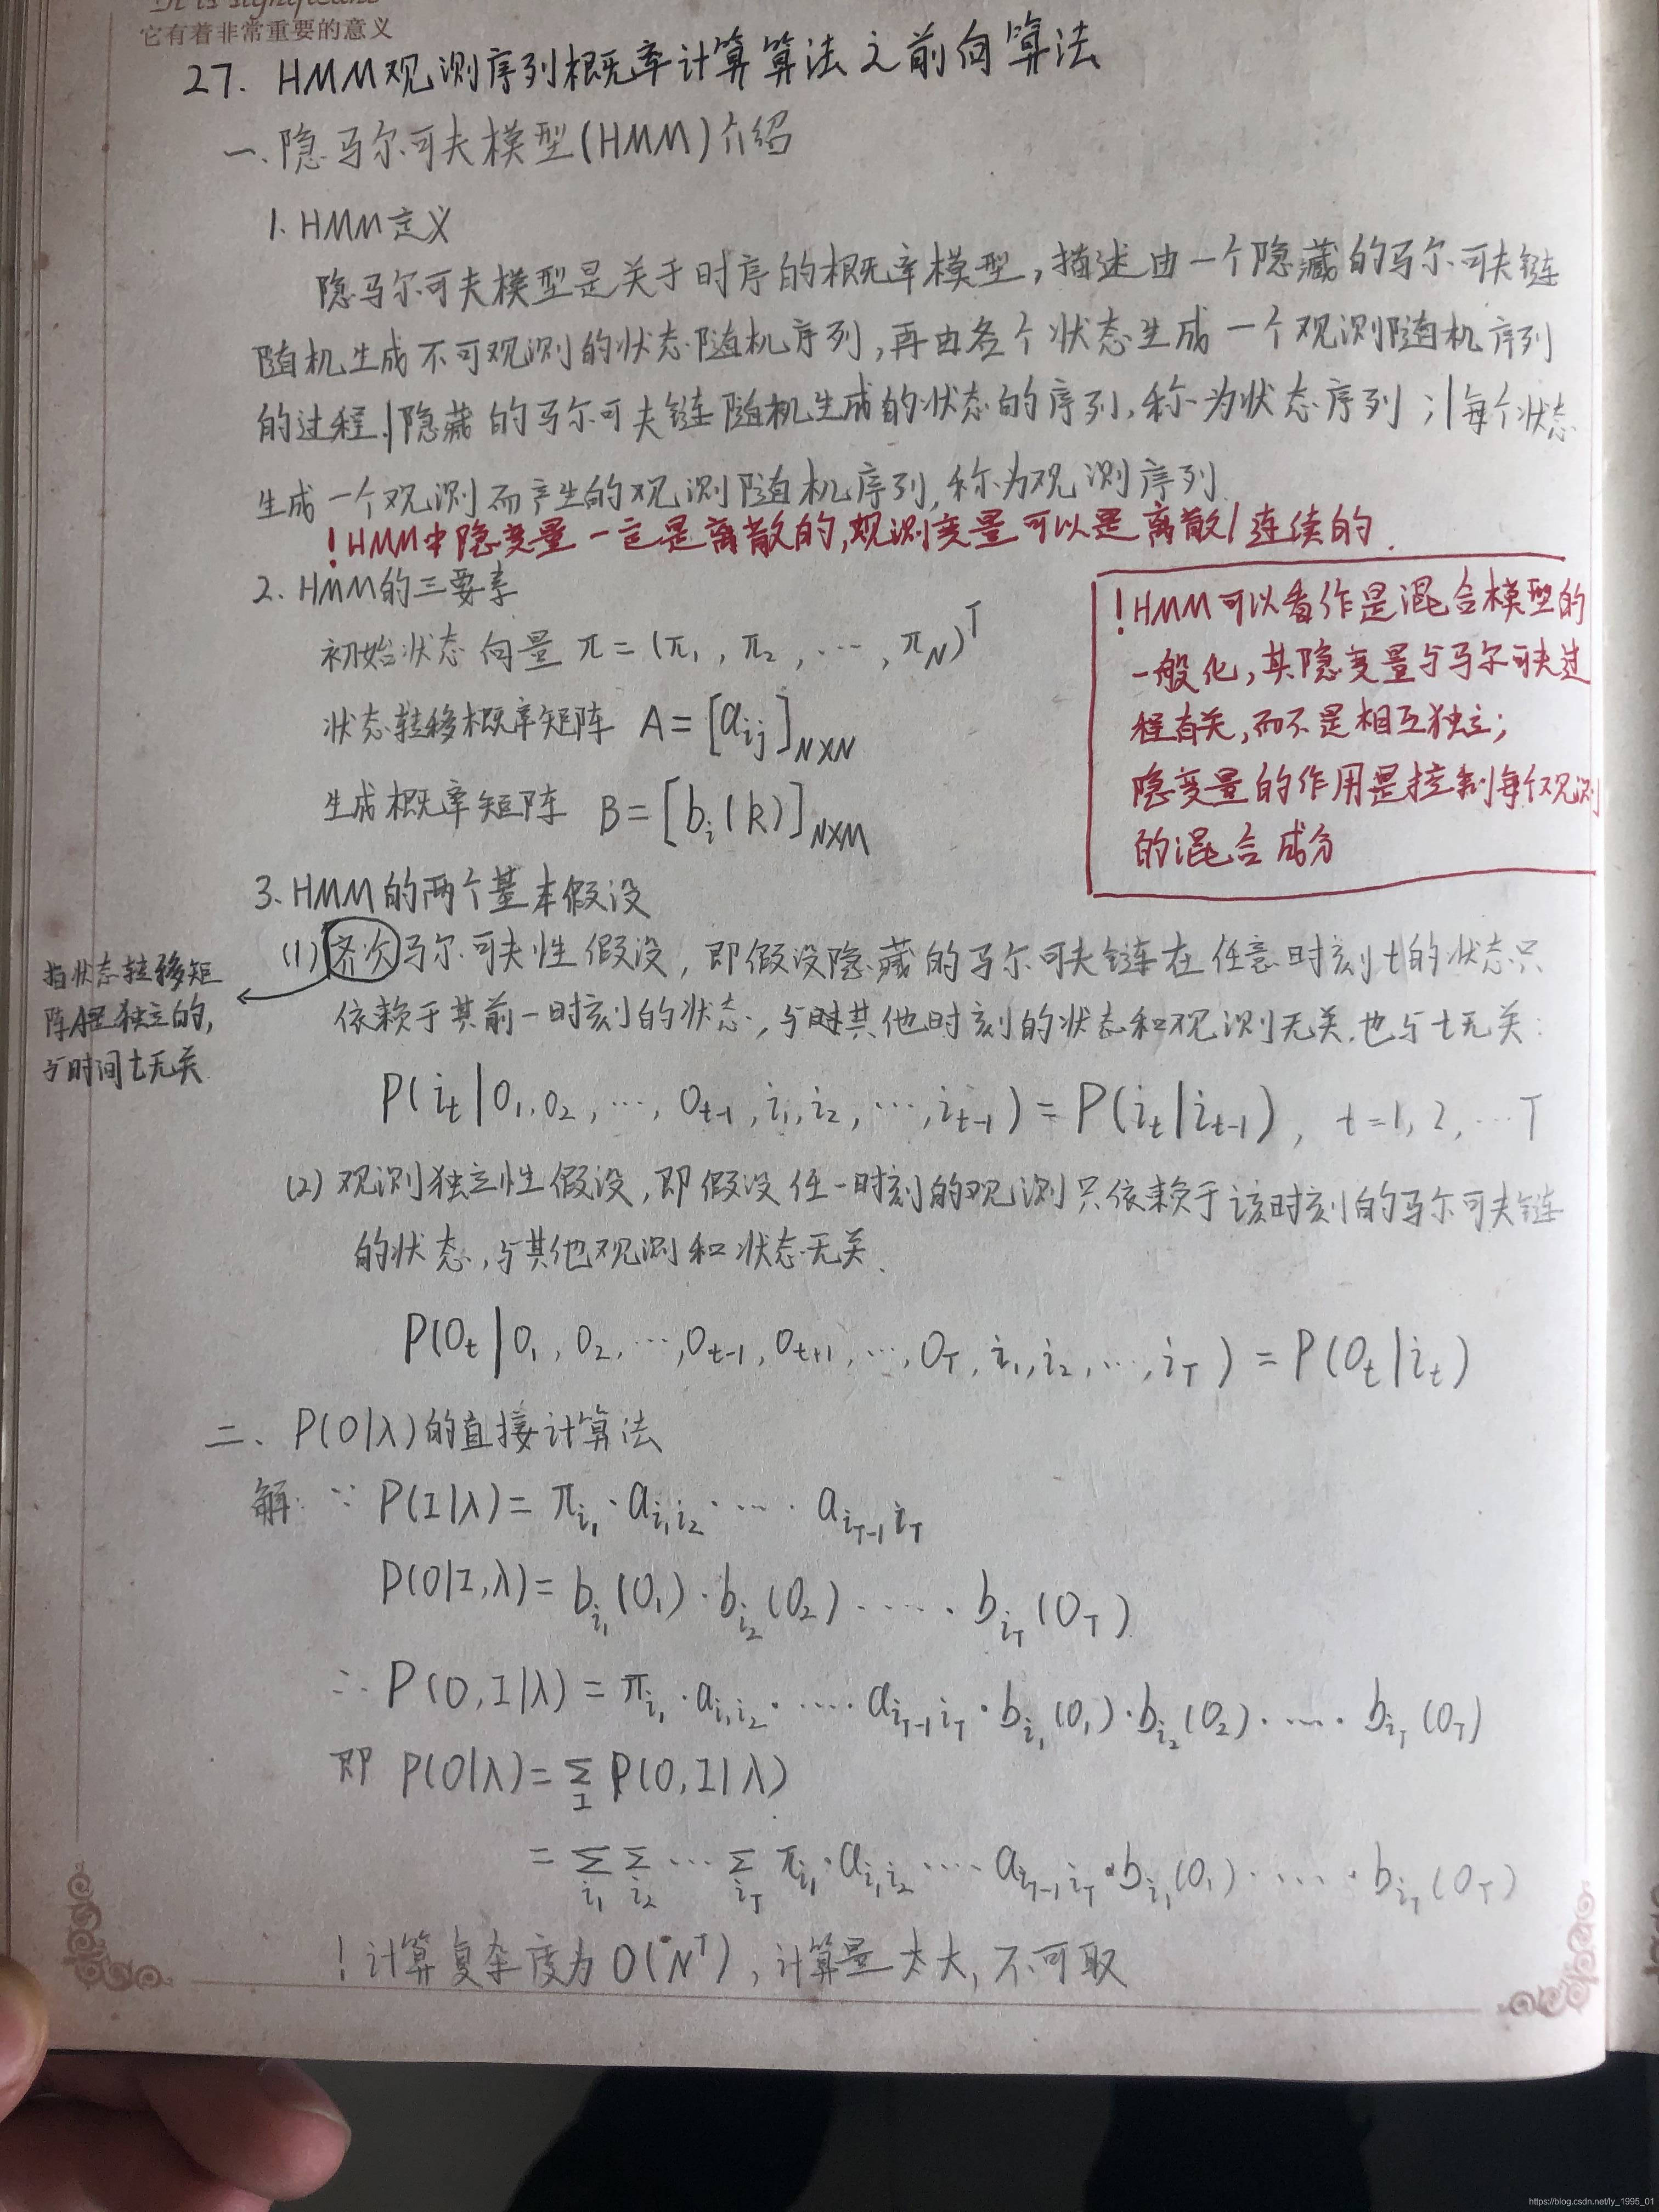 It is significant
它有着非常重要的意义
27. HMM观测序列概率计算算法之前向算法
一、隐马尔可夫模型(HMM)介绍
1. HMM定义
隐马尔可夫模型是关于时序的概率模型,描述由一个隐藏的马尔可夫链
随机生成不可观测的状态随机序列,再由各个状态生成一个观测随机序列
的过程.|隐藏的马尔可夫链随机生成的状态的序列,称为状态序列;|每个状态
生成一个观测而产生的观测随机序列,称为观测序列.
!HMM中隐变量一定是离散的,观测变量可以是离散/连续的.
2. HMM的三要素
初始状态向量 π=(π₁, π₂, ⋯, π_N)^T
状态转移概率矩阵 A=[a_ij]_N×N
生成概率矩阵 B=[b_i(k)]_N×M
!HMM可以看作是混合模型的
一般化,其隐变量与马尔可夫过
程有关,而不是相互独立;
隐变量的作用是控制每个观测
的混合成分
3. HMM的两个基本假设
(1) 齐次马尔可夫性假设,即假设隐藏的马尔可夫链在任意时刻t的状态只
依赖于其前一时刻的状态,与其他时刻的状态和观测无关.也与t无关:
指状态转移矩
阵A是独立的,
与时间t无关.
P(i_t|o₁,o₂,⋯,o_t-1,i₁,i₂,⋯,i_t-1)=P(i_t|i_t-1), t=1,2,⋯T
(2) 观测独立性假设,即假设任一时刻的观测只依赖于该时刻的马尔可夫链
的状态,与其他观测和状态无关.
P(o_t|o₁,o₂,⋯,o_t-1,o_t+1,⋯,o_T,i₁,i₂,⋯,i_T)=P(o_t|i_t)
二、P(O|λ)的直接计算法
解: ∵ P(I|λ)=π_i₁·a_i₁i₂·⋯·a_i_T-1 i_T
P(O|I,λ)=b_i₁(o₁)·b_i₂(o₂)·⋯·b_i_T(o_T)
∴ P(O,I|λ)=π_i₁·a_i₁i₂·⋯·a_i_T-1 i_T·b_i₁(o₁)·b_i₂(o₂)·⋯·b_i_T(o_T)
即 P(O|λ)=Σ_I P(O,I|λ)
=Σ_i₁ Σ_i₂ ⋯ Σ_i_T π_i₁·a_i₁i₂⋯a_i_T-1 i_T·b_i₁(o₁)·⋯·b_i_T(o_T)
!计算复杂度为O(N^T),计算量太大,不可取
https://blog.csdn.net/ly_1995_01